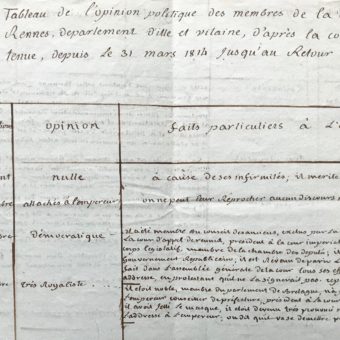 Tableau de l'opinion politique des membres de la
Rennes, departement d'ille et vilaine, d'après la co
tenue, depuis le 31 mars 1814 jusqu'au Retour
opinion
faits particuliers à L'
nulle
à cause de ses infirmités; il merite
attachés à l'empereur
on ne peut leur Reprocher aucun discours
Démocratique
il a été membre du conseil des anciens, exclus par
La Cour d'appel de président à la cour imperial
corps legislatif, membre de la chambre des deputés; il
Gouvernement Republicain; il est
fait dans l'assemblée generale de la cour tous ses eff
addresse, en protestant qu'il ne la signerait pas.
très Royaliste
il etoit noble, membre du parlement de Bretagne,
L'empereur conseiller de préfecture, président à la cour
il avoit jetté le masque, il etoit devenu très prononcé
L'addresse à L'empereur; on dit qu'il va se demettre